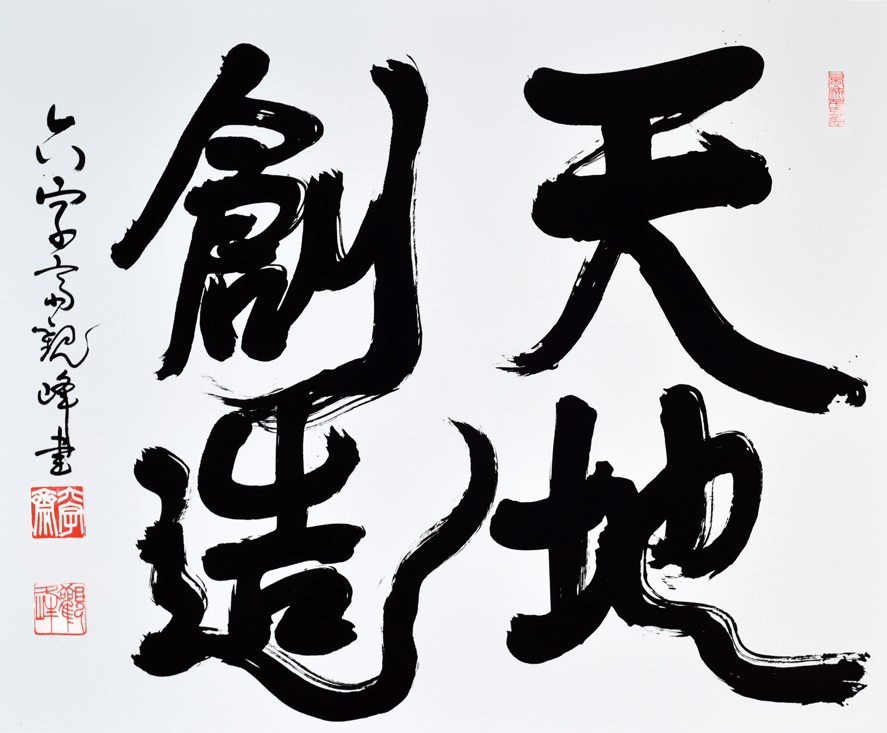 天地
創造
六字斎観峰書
六字齋
觀峰